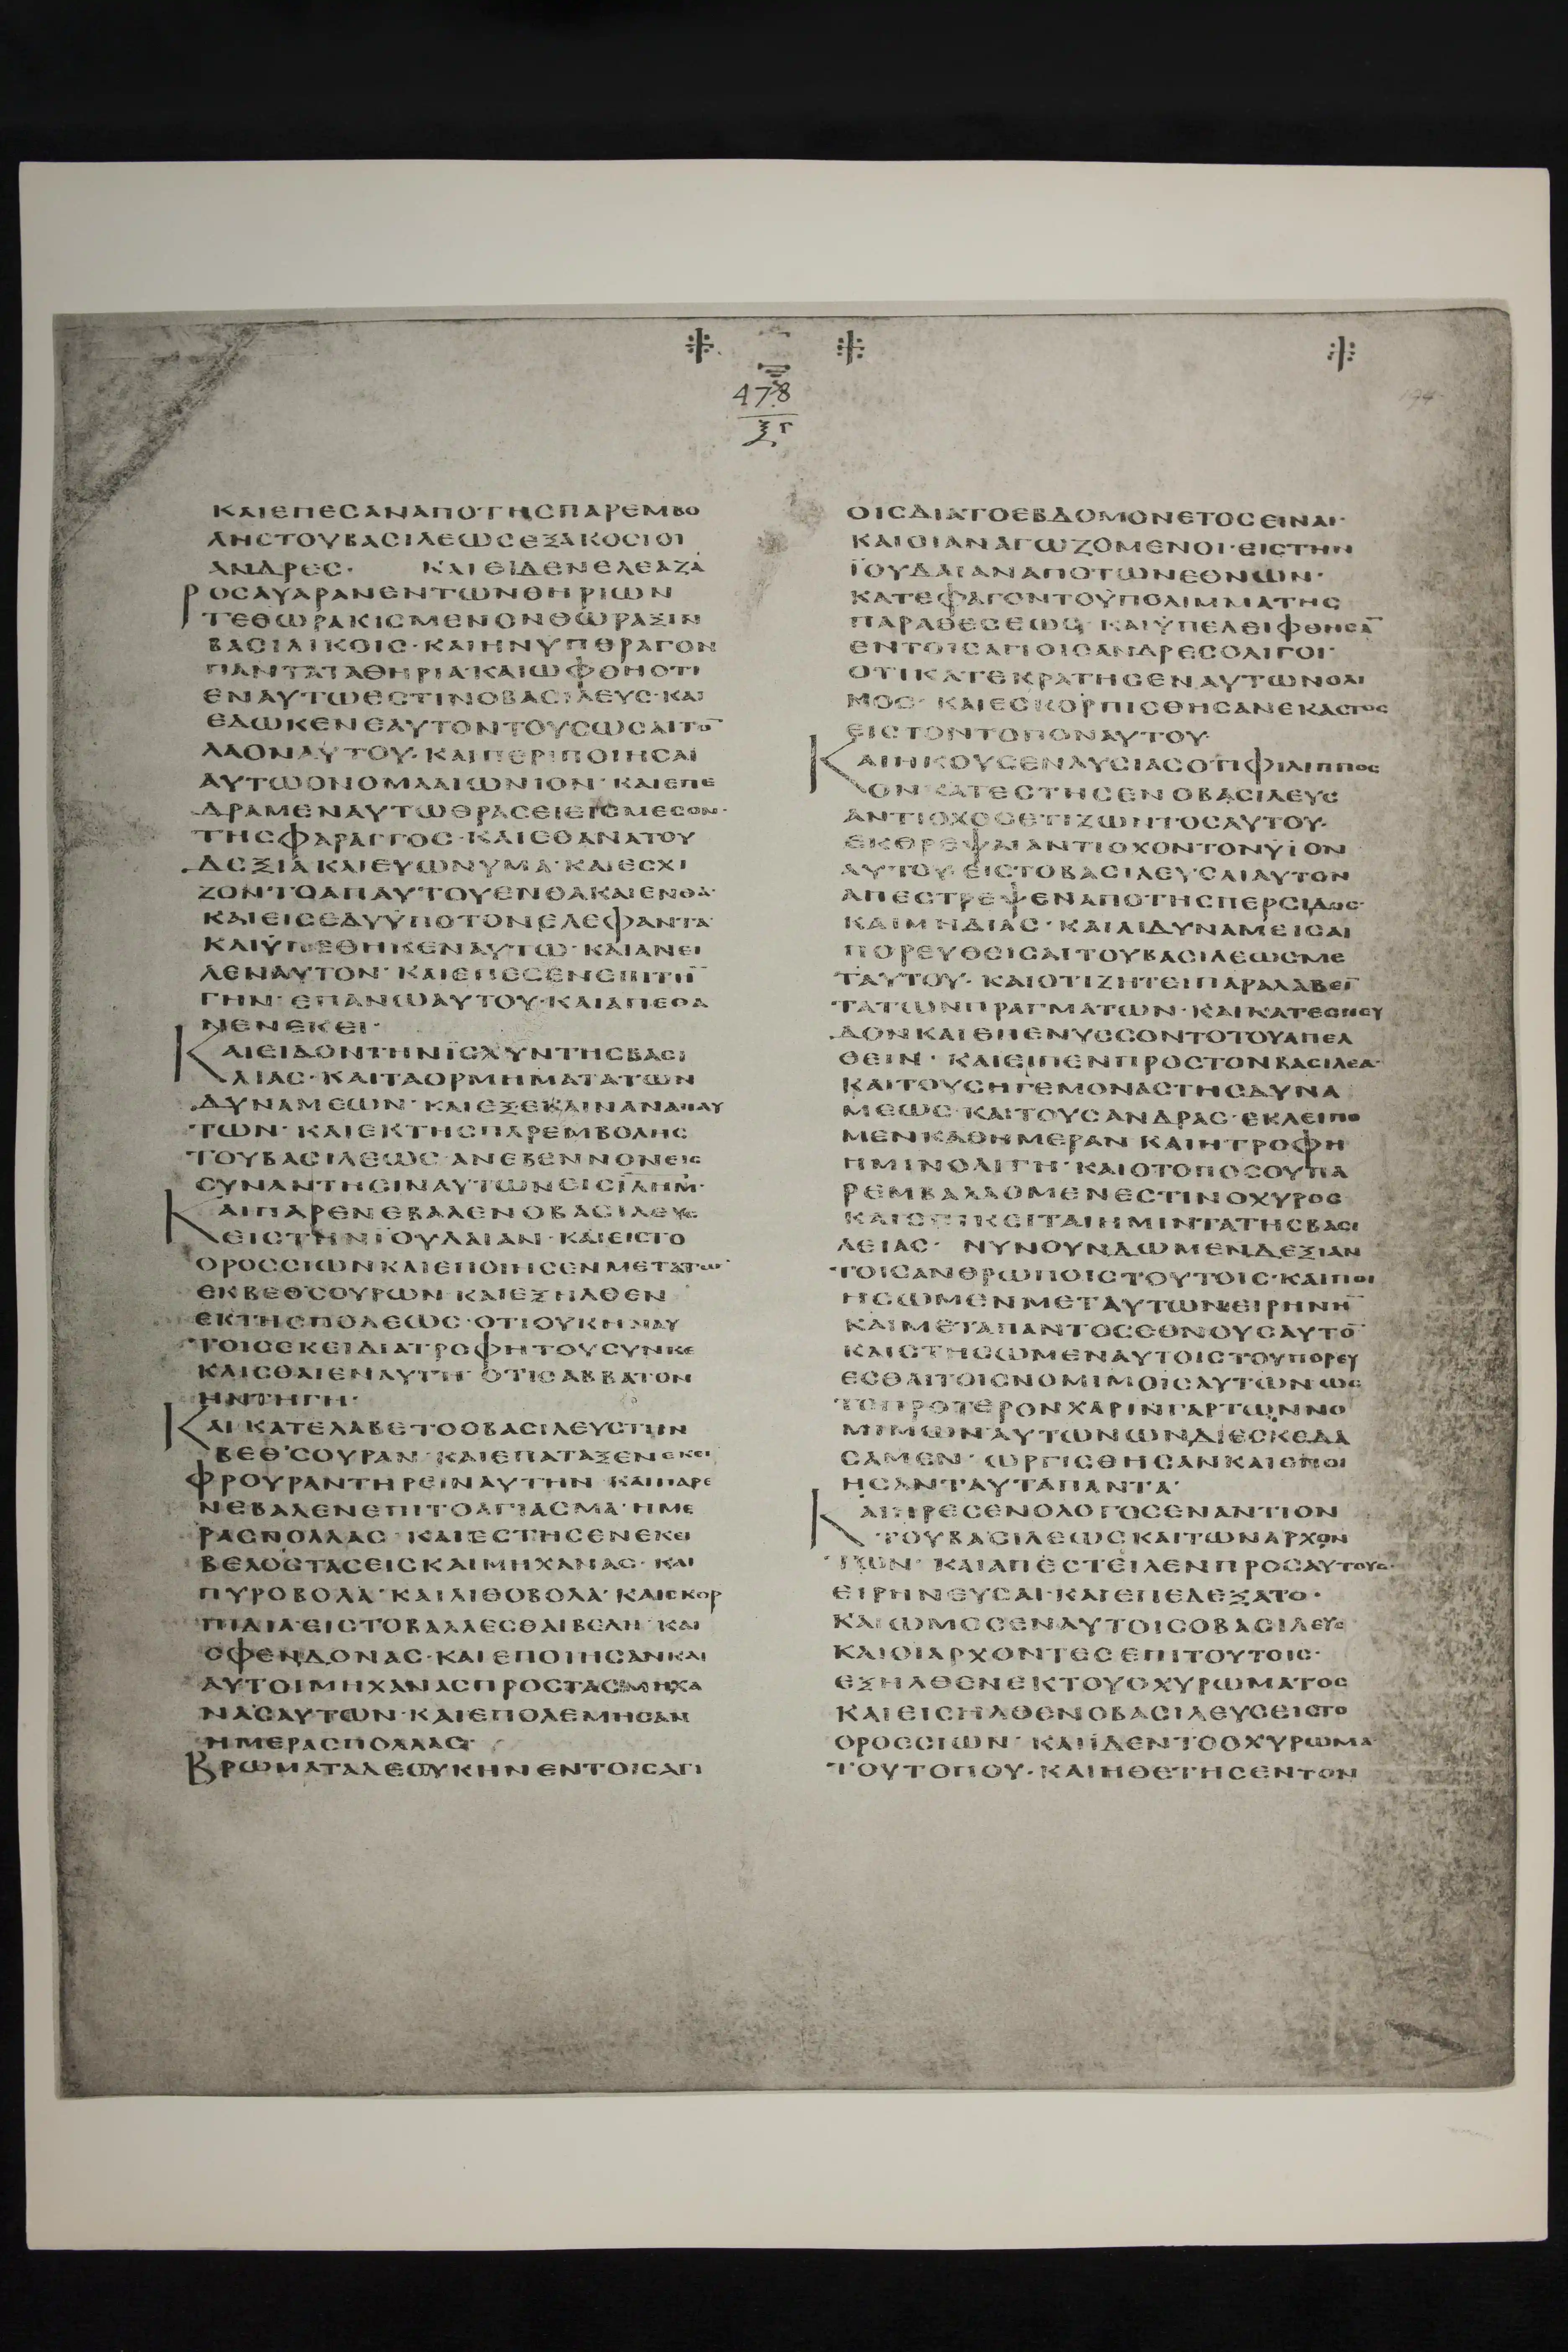 478
ξγ
ΚΑΙΕΠΕϹΑΝΑΠΟΤΗϹΠΑΡΕΜΒΟ
ΛΗϹΤΟΥΒΑϹΙΛΕΩϹΕΞΑΚΟϹΙΟΙ
ΑΝΔΡΕϹ· ΚΑΙΕΙΔΕΝΕΛΕΑΖΑ
ΡΟϹΑΥΑΡΑΝΕΝΤΩΝΘΗΡΙΩΝ
ΤΕΘΩΡΑΚΙϹΜΕΝΟΝΘΩΡΑΞΙΝ
ΒΑϹΙΛΙΚΟΙϹ·ΚΑΙΗΝΥΠΕΡΑΓΟΝ
ΠΑΝΤΑΤΑΘΗΡΙΑ·ΚΑΙΩΦΘΗΟΤΙ
ΕΝΑΥΤΩΕϹΤΙΝΟΒΑϹΙΛΕΥϹ·ΚΑΙ
ΕΔΩΚΕΝΕΑΥΤΟΝΤΟΥϹΩϹΑΙΤΟ̅
ΛΑΟΝΑΥΤΟΥ·ΚΑΙΠΕΡΙΠΟΙΗϹΑΙ
ΑΥΤΩΟΝΟΜΑΑΙΩΝΙΟΝ·ΚΑΙΕΠΕ
ΔΡΑΜΕΝΑΥΤΩΘΡΑϹΕΙΕΙϹΜΕϹΟΝ·
ΤΗϹΦΑΡΑΓΓΟϹ·ΚΑΙΕΘΑΝΑΤΟΥ
ΔΕΞΙΑΚΑΙΕΥΩΝΥΜΑ·ΚΑΙΕϹΧΙ
ΖΟΝΤΟΑΠΑΥΤΟΥΕΝΘΑΚΑΙΕΝΘΑ·
ΚΑΙΕΙϹΕΔΥΫΠΟΤΟΝΕΛΕΦΑΝΤΑ·
ΚΑΙΫΠΕΘΗΚΕΝΑΥΤΩ·ΚΑΙΑΝΕΙ
ΛΕΝΑΥΤΟΝ·ΚΑΙΕΠΕϹΕΝΕΠΙΤΗ̅
ΓΗΝ·ΕΠΑΝΩΑΥΤΟΥ·ΚΑΙΑΠΕΘΑ
ΝΕΝΕΚΕΙ·
ΚΑΙΕΙΔΟΝΤΗΝΪϹΧΥΝΤΗϹΒΑϹΙ
ΛΙΑϹ·ΚΑΙΤΑΟΡΜΗΜΑΤΑΤΩΝ
ΔΥΝΑΜΕΩΝ·ΚΑΙΕΞΕΚΛΙΝΑΝΑΠΑΥ
ΤΩΝ·ΚΑΙΕΚΤΗϹΠΑΡΕΜΒΟΛΗϹ
ΤΟΥΒΑϹΙΛΕΩϹ·ΑΝΕΒΕΝΝΟΝΕΙϹ
ϹΥΝΑΝΤΗϹΙΝΑΥΤΩΝΕΙϹΪΛΗΜ·
ΚΑΙΠΑΡΕΝΕΒΑΛΕΝΟΒΑϹΙΛΕΥϹ
ΕΙϹΤΗΝΪΟΥΔΑΙΑΝ·ΚΑΙΕΙϹΤΟ
ΟΡΟϹϹΙΩΝΚΑΙΕΠΟΙΗϹΕΝΜΕΤΑΤΩ̅
ΕΚΒΕΘϹΟΥΡΩΝ·ΚΑΙΕΞΗΛΘΕΝ
ΕΚΤΗϹΠΟΛΕΩϹ·ΟΤΙΟΥΚΗΝΑΥ
ΤΟΙϹΕΚΕΙΔΙΑΤΡΟΦΗΤΟΥϹΥΝΚΕ
ΚΛΙϹΘΑΙΕΝΑΥΤΗ·ΟΤΙϹΑΒΒΑΤΟΝ
ΗΝΤΗΓΗ·
ΚΑΙΚΑΤΕΛΑΒΕΤΟΟΒΑϹΙΛΕΥϹΤΗΝ
ΒΕΘϹΟΥΡΑΝ·ΚΑΙΕΠΑΤΑΞΕΝΕΚΕΙ
ΦΡΟΥΡΑΝΤΗΡΕΙΝΑΥΤΗΝ·ΚΑΙΠΑΡΕ
ΝΕΒΑΛΕΝΕΠΙΤΟΑΓΙΑϹΜΑ·ΗΜΕ
ΡΑϹΠΟΛΛΑϹ·ΚΑΙΕϹΤΗϹΕΝΕΚΕΙ
ΒΕΛΟϹΤΑϹΕΙϹΚΑΙΜΗΧΑΝΑϹ·ΚΑΙ
ΠΥΡΟΒΟΛΑ·ΚΑΙΛΙΘΟΒΟΛΑ·ΚΑΙϹΚΟΡ
ΠΙΔΙΑ·ΕΙϹΤΟΒΑΛΛΕϹΘΑΙΒΕΛΗ·ΚΑΙ
ϹΦΕΝΔΟΝΑϹ·ΚΑΙΕΠΟΙΗϹΑΝΚΑΙ
ΑΥΤΟΙΜΗΧΑΝΑϹΠΡΟϹΤΑϹΜΗΧΑ
ΝΑϹΑΥΤΩΝ·ΚΑΙΕΠΟΛΕΜΗϹΑΝ
ΗΜΕΡΑϹΠΟΛΛΑϹ·
ΒΡΩΜΑΤΑΔΕΟΥΚΗΝΕΝΤΟΙϹΑΓΙ
ΟΙϹΔΙΑΤΟΕΒΔΟΜΟΝΕΤΟϹΕΙΝΑΙ·
ΚΑΙΟΙΑΝΑϹΩΖΟΜΕΝΟΙ·ΕΙϹΤΗΝ
ΪΟΥΔΑΙΑΝΑΠΟΤΩΝΕΘΝΩΝ·
ΚΑΤΕΦΑΓΟΝΤΟΫΠΟΛΙΜΜΑΤΗϹ
ΠΑΡΑΘΕϹΕΩϹ·ΚΑΙΫΠΕΛΕΙΦΘΗϹΑ̅
ΕΝΤΟΙϹΑΓΙΟΙϹΑΝΔΡΕϹΟΛΙΓΟΙ·
ΟΤΙΚΑΤΕΚΡΑΤΗϹΕΝΑΥΤΩΝΟΛΙ
ΜΟϹ·ΚΑΙΕϹΚΟΡΠΙϹΘΗϹΑΝΕΚΑϹΤΟϹ
ΕΙϹΤΟΝΤΟΠΟΝΑΥΤΟΥ·
ΚΑΙΗΚΟΥϹΕΝΛΥϹΙΑϹΟΤΙΦΙΛΙΠΠΟϹ
ΟΝΚΑΤΕϹΤΗϹΕΝΟΒΑϹΙΛΕΥϹ
ΑΝΤΙΟΧΟϹΕΤΙΖΩΝΤΟϹΑΥΤΟΥ·
ΕΚΘΡΕΨΑΙΑΝΤΙΟΧΟΝΤΟΝΥΪΟΝ
ΑΥΤΟΥ·ΕΙϹΤΟΒΑϹΙΛΕΥϹΑΙΑΥΤΟΝ
ΑΠΕϹΤΡΕΨΕΝΑΠΟΤΗϹΠΕΡϹΙΔΟϹ·
ΚΑΙΜΗΔΙΑϹ·ΚΑΙΑΙΔΥΝΑΜΕΙϹΑΙ
ΠΟΡΕΥΘΕΙϹΑΙΤΟΥΒΑϹΙΛΕΩϹΜΕ
ΤΑΥΤΟΥ·ΚΑΙΟΤΙΖΗΤΕΙΠΑΡΑΛΑΒΕΙ̅
ΤΑΤΩΝΠΡΑΓΜΑΤΩΝ·ΚΑΙΚΑΤΕϹΠΕΥ
ΔΟΝΚΑΙΕΠΕΝΥϹϹΟΝΤΟΤΟΥΑΠΕΛ
ΘΕΙΝ·ΚΑΙΕΙΠΕΝΠΡΟϹΤΟΝΒΑϹΙΛΕΑ·
ΚΑΙΤΟΥϹΗΓΕΜΟΝΑϹΤΗϹΔΥΝΑ
ΜΕΩϹ·ΚΑΙΤΟΥϹΑΝΔΡΑϹ·ΕΚΛΕΙΠΟ
ΜΕΝΚΑΘΗΜΕΡΑΝΚΑΙΗΤΡΟΦΗ
ΗΜΙΝΟΛΙΓΗ·ΚΑΙΟΤΟΠΟϹΟΥΠΑ
ΡΕΜΒΑΛΛΟΜΕΝΕϹΤΙΝΟΧΥΡΟϹ
ΚΑΙΕΠΙΚΕΙΤΑΙΗΜΙΝΤΑΤΗϹΒΑϹΙ
ΛΕΙΑϹ· ΝΥΝΟΥΝΔΩΜΕΝΔΕΞΙΑΝ
ΤΟΙϹΑΝΘΡΩΠΟΙϹΤΟΥΤΟΙϹ·ΚΑΙΠΟΙ
ΗϹΩΜΕΝΜΕΤΑΥΤΩΝΕΙΡΗΝΗ̅
ΚΑΙΜΕΤΑΠΑΝΤΟϹΕΘΝΟΥϹΑΥΤΩ̅
ΚΑΙϹΤΗϹΩΜΕΝΑΥΤΟΙϹΤΟΥΠΟΡΕΥ
ΕϹΘΑΙΤΟΙϹΝΟΜΙΜΟΙϹΑΥΤΩΝΩϹ
ΤΟΠΡΟΤΕΡΟΝΧΑΡΙΝΓΑΡΤΩΝΝΟ
ΜΙΜΩΝΑΥΤΩΝΩΝΔΙΕϹΚΕΔΑ
ϹΑΜΕΝ·ΩΡΓΙϹΘΗϹΑΝΚΑΙΕΠΟΙ
ΗϹΑΝΤΑΥΤΑΠΑΝΤΑ·
ΚΑΙΗΡΕϹΕΝΟΛΟΓΟϹΕΝΑΝΤΙΟΝ
ΤΟΥΒΑϹΙΛΕΩϹΚΑΙΤΩΝΑΡΧΟΝ
ΤΩΝ·ΚΑΙΑΠΕϹΤΕΙΛΕΝΠΡΟϹΑΥΤΟΥϹ·
ΕΙΡΗΝΕΥϹΑΙ·ΚΑΙΕΠΕΛΕΞΑΤΟ·
ΚΑΙΩΜΟϹΕΝΑΥΤΟΙϹΟΒΑϹΙΛΕΥϹ
ΚΑΙΟΙΑΡΧΟΝΤΕϹΕΠΙΤΟΥΤΟΙϹ·
ΕΞΗΛΘΕΝΕΚΤΟΥΟΧΥΡΩΜΑΤΟϹ
ΚΑΙΕΙϹΗΛΘΕΝΟΒΑϹΙΛΕΥϹΕΙϹΤΟ
ΟΡΟϹϹΙΩΝ·ΚΑΙΙΔΕΝΤΟΟΧΥΡΩΜΑ
ΤΟΥΤΟΠΟΥ·ΚΑΙΗΘΕΤΗϹΕΝΤΟΝ